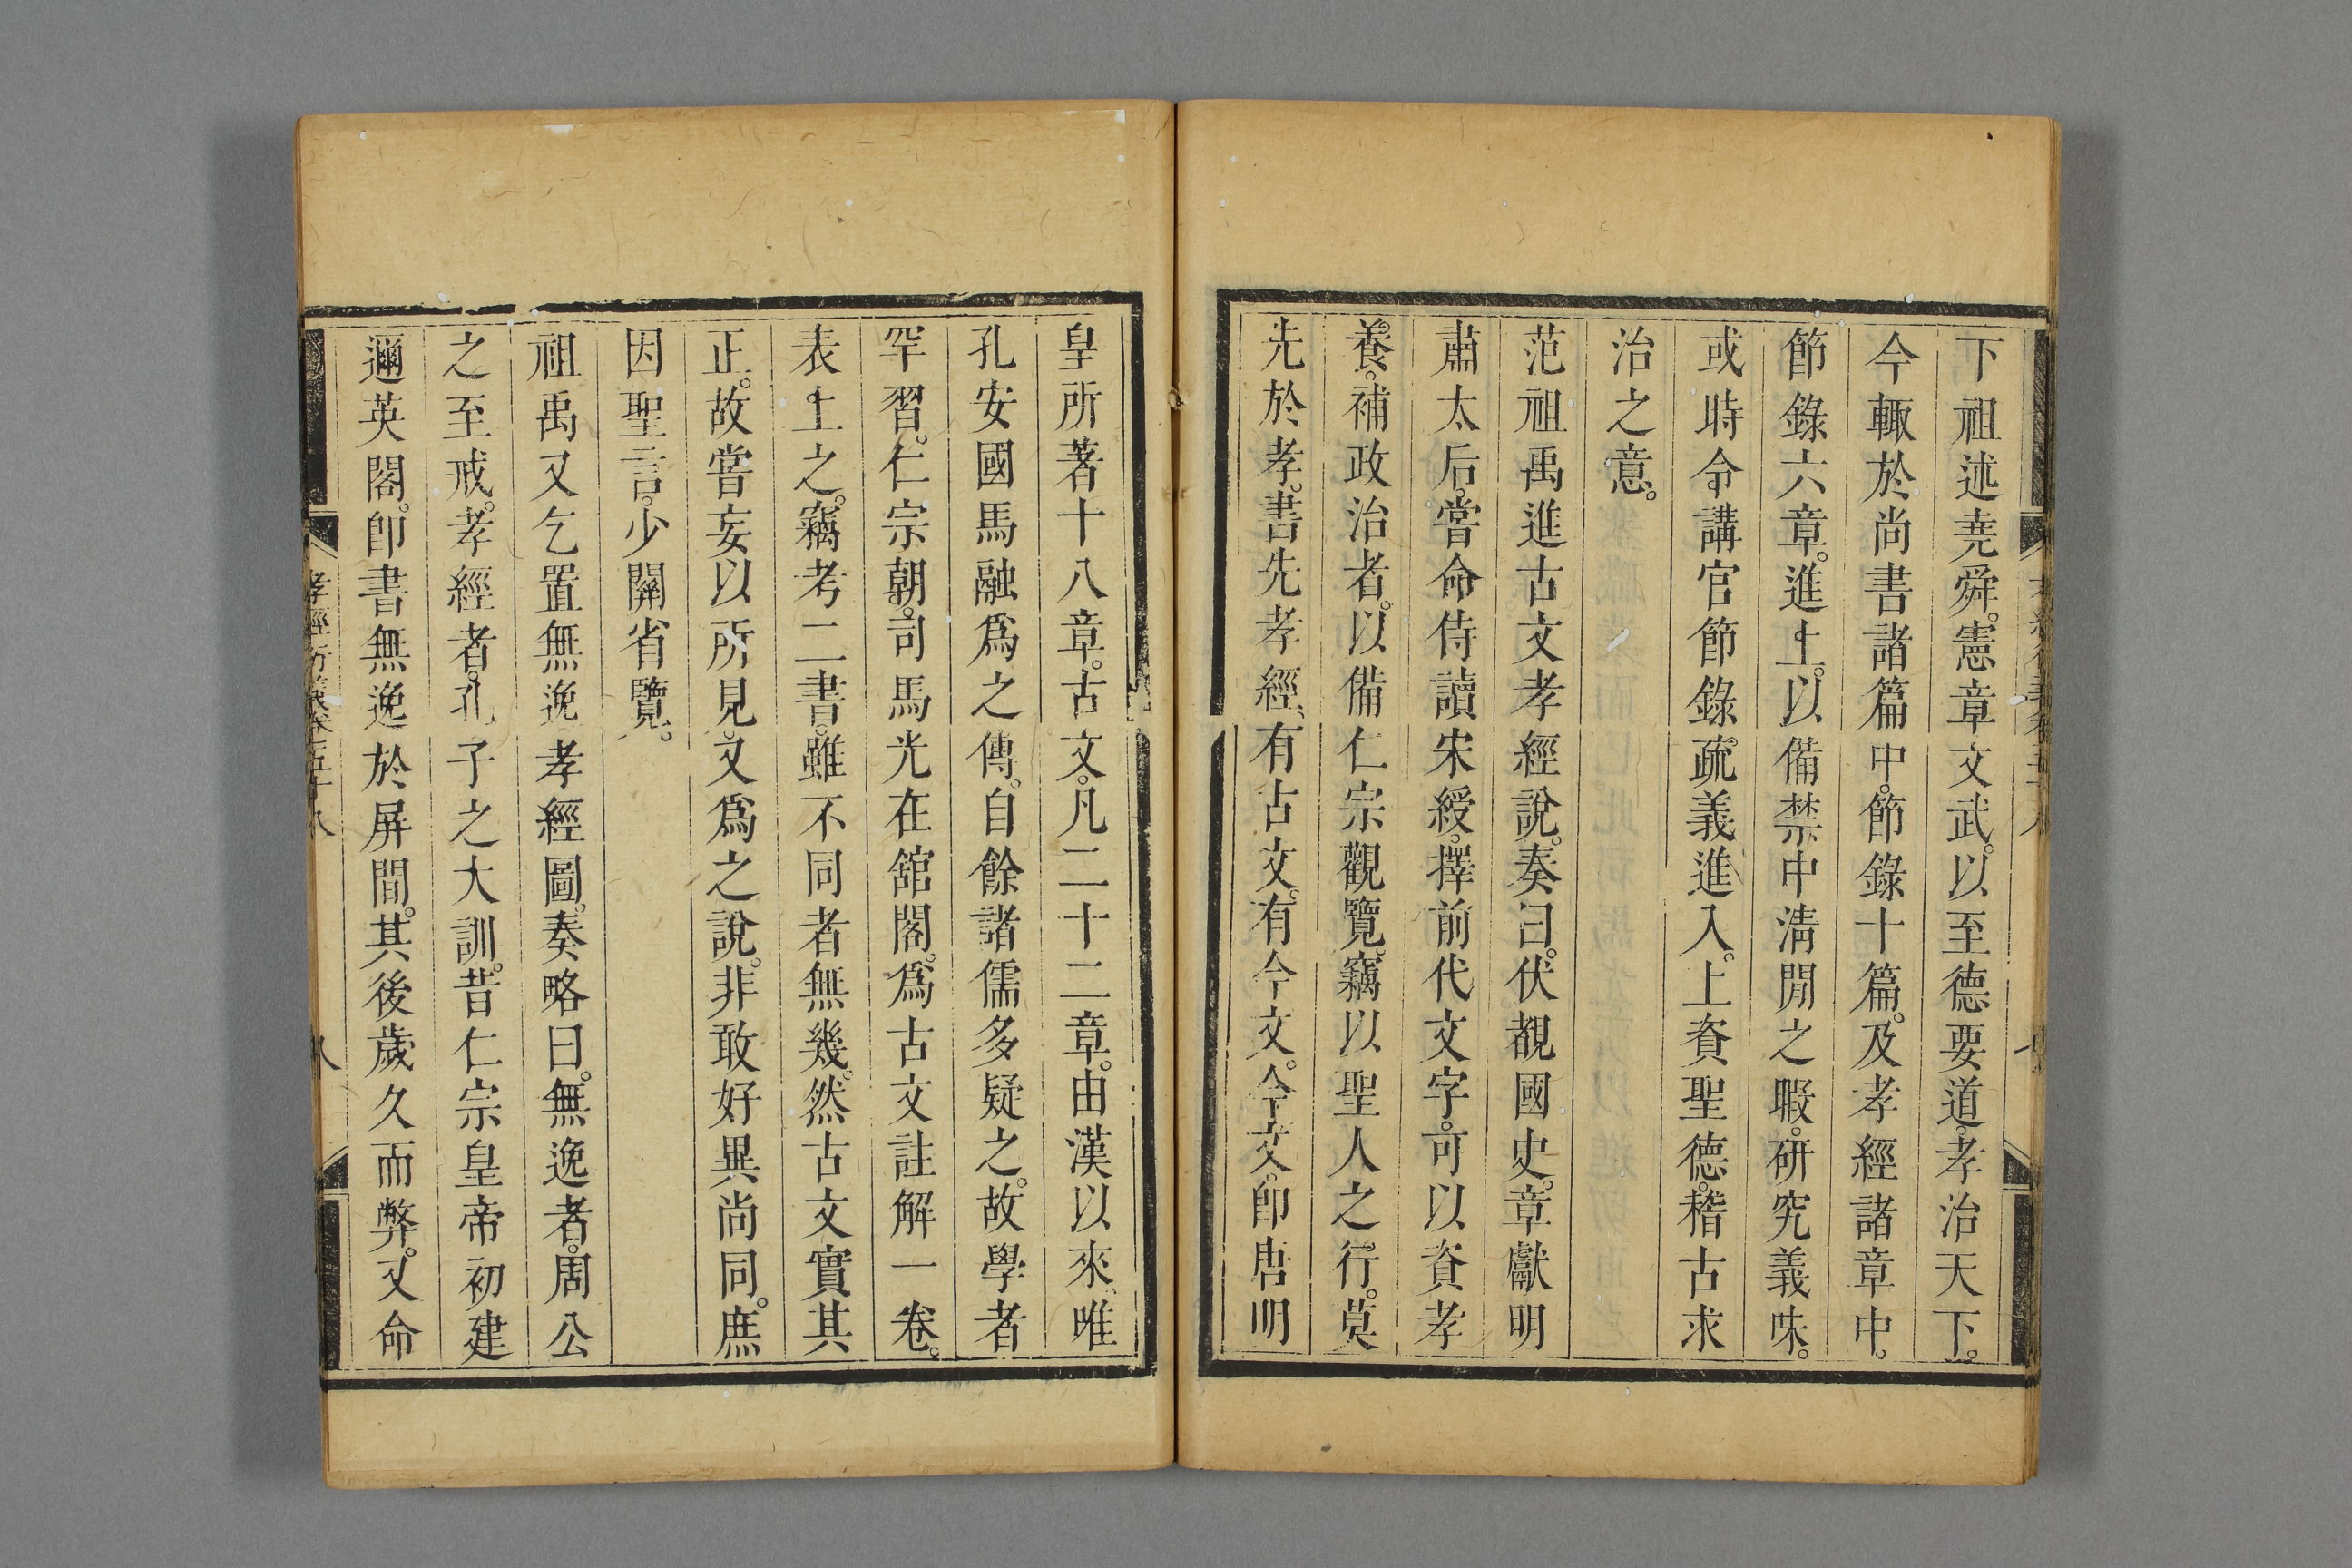 下祖述堯舜。憲章文武。以至德要道。孝治天下。
今輙於尚書諸篇中。節錄十篇。及孝經諸章中。
節錄六章。進上。以備禁中淸閒之暇。硏究義味。
或時令講官節錄疏義進入。上資聖德。稽古求
治之意。
范祖禹進古文孝經說。奏曰。伏覩國史。章獻明
肅太后。嘗命侍讀宋綬。擇前代文字。可以資孝
養。補政治者。以備仁宗觀覽。竊以聖人之行。莫
先於孝。書先孝經。有古文。有今文。今文。卽唐明
皇所著十八章。古文。凡二十二章。由漢以來、唯
孔安國馬融爲之傳。自餘諸儒多疑之。故學者
罕習。仁宗朝。司馬光在舘閣。爲古文註解一卷。
表上之。竊考二書。雖不同者無幾。然古文實其
正。故嘗妄以所見。又爲之說。非敢好異尚同。庶
因聖言。少關省覽。
祖禹又乞置無逸孝經圖。奏略曰。無逸者。周公
之至戒。孝經者。孔子之大訓。昔仁宗皇帝初建
邇英閣。卽書無逸於屏間。其後歲久而弊。又命
孝經衍義卷五十八
八